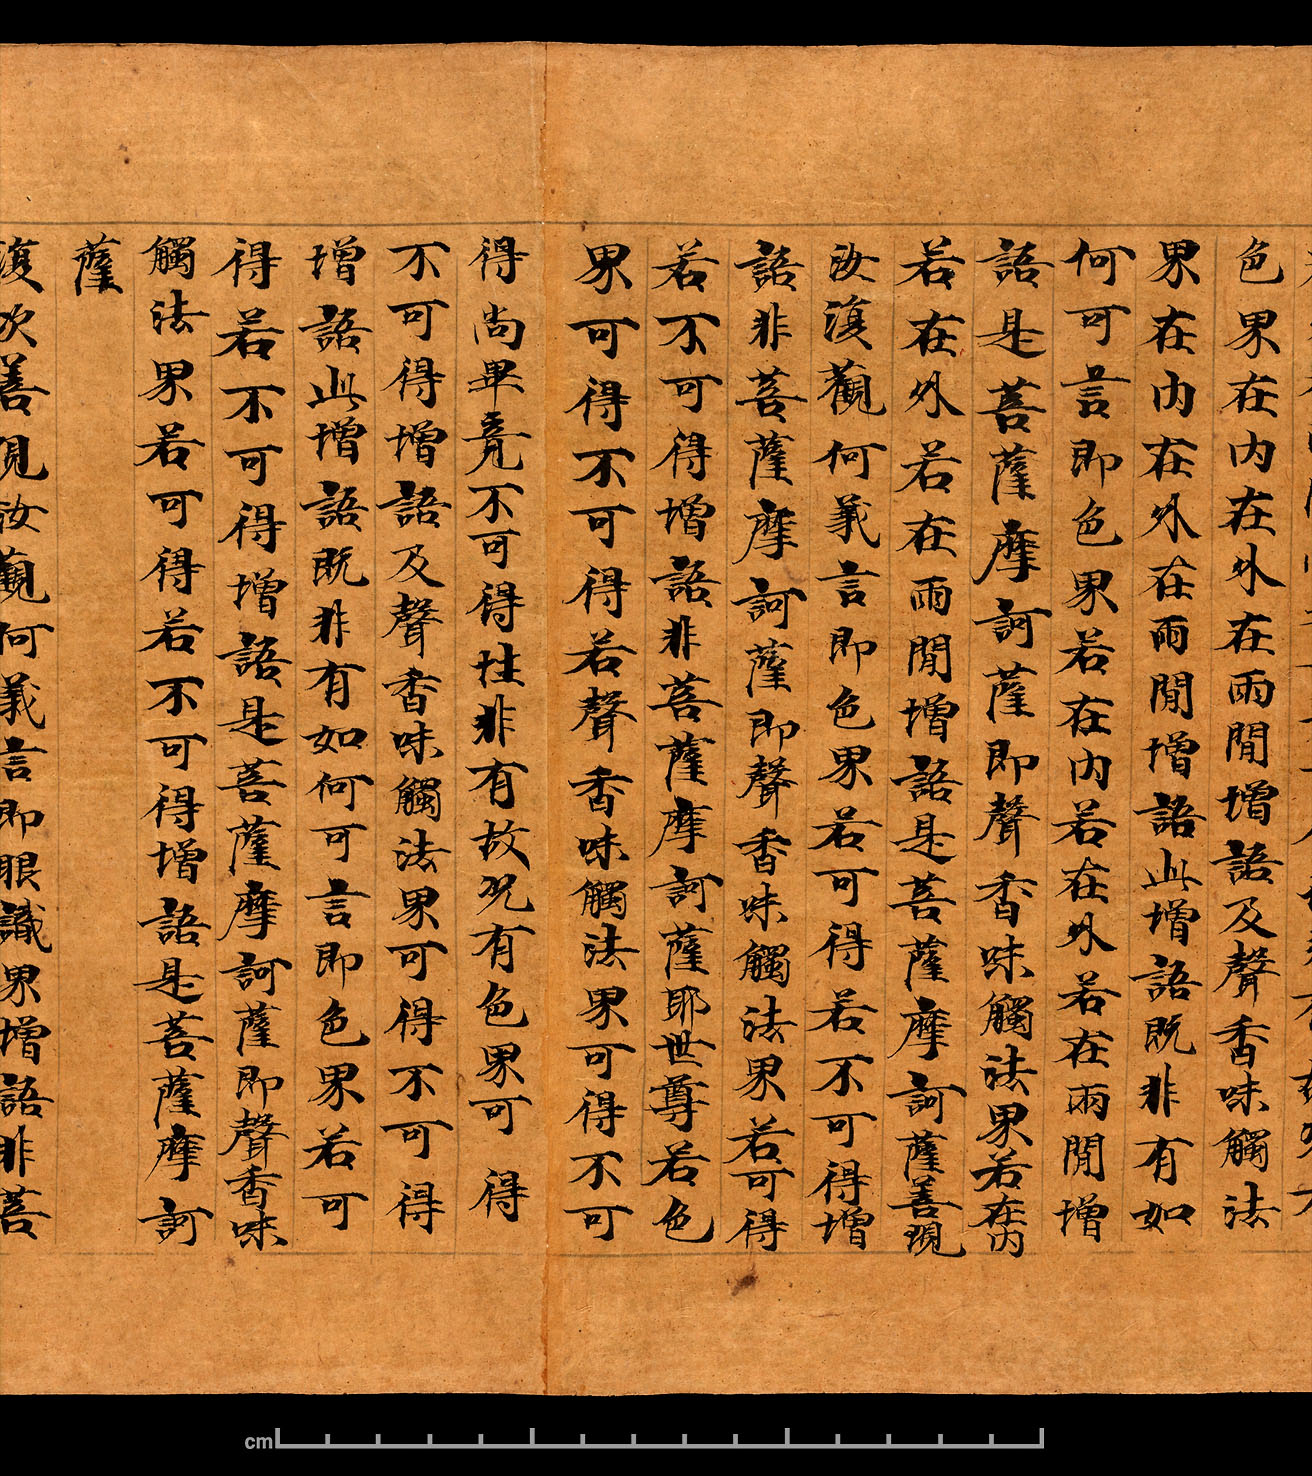 色界在内在外在兩閒增語及聲香味觸法
界在内在外在兩閒增語此增語既非有如
何可言即色界若在内若在外若在兩閒增
語是菩薩摩訶薩即聲香味觸法界若在内
若在外若在兩閒增語是菩薩摩訶薩善現
汝復觀何義言即色界若可得若不可得增
語非菩薩摩訶薩即聲香味觸法界若可得
若不可得增語非菩薩摩訶薩耶世尊若色
界可得不可得若聲香味觸法界可得不可
得尚畢竟不可得性非有故況有色界可得
不可得增語及聲香味觸法界可得不可得
增語此增語既非有如何可言即色界若可
得若不可得增語是菩薩摩訶薩即聲香味
觸法界若可得若不可得增語是菩薩摩訶
薩
復次善現汝觀何義言即眼識界增語非菩